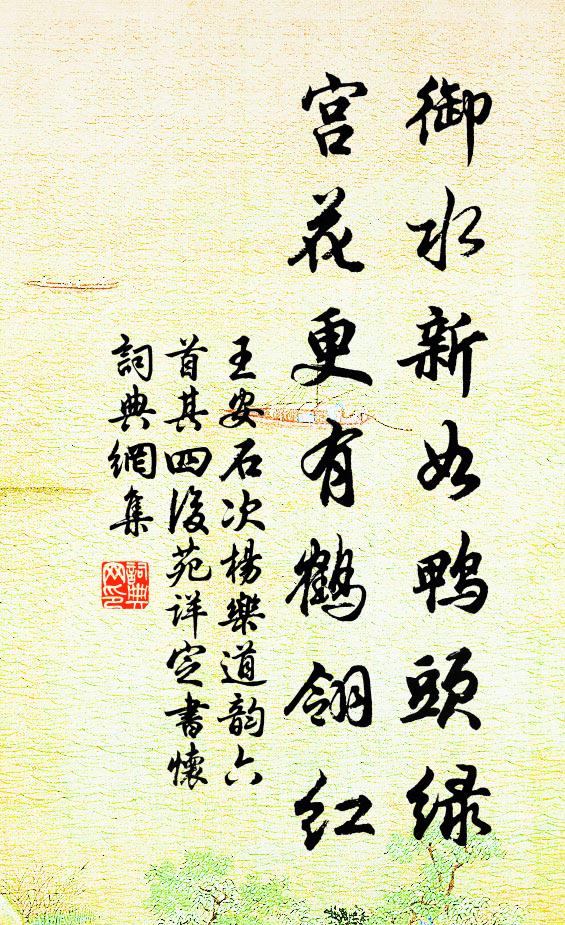 御水新如鸭头绿
宫花更有鹤翎红
王安石次杨乐道韵六
首其四後苑详定书怀
詞典網集
詞典
网印